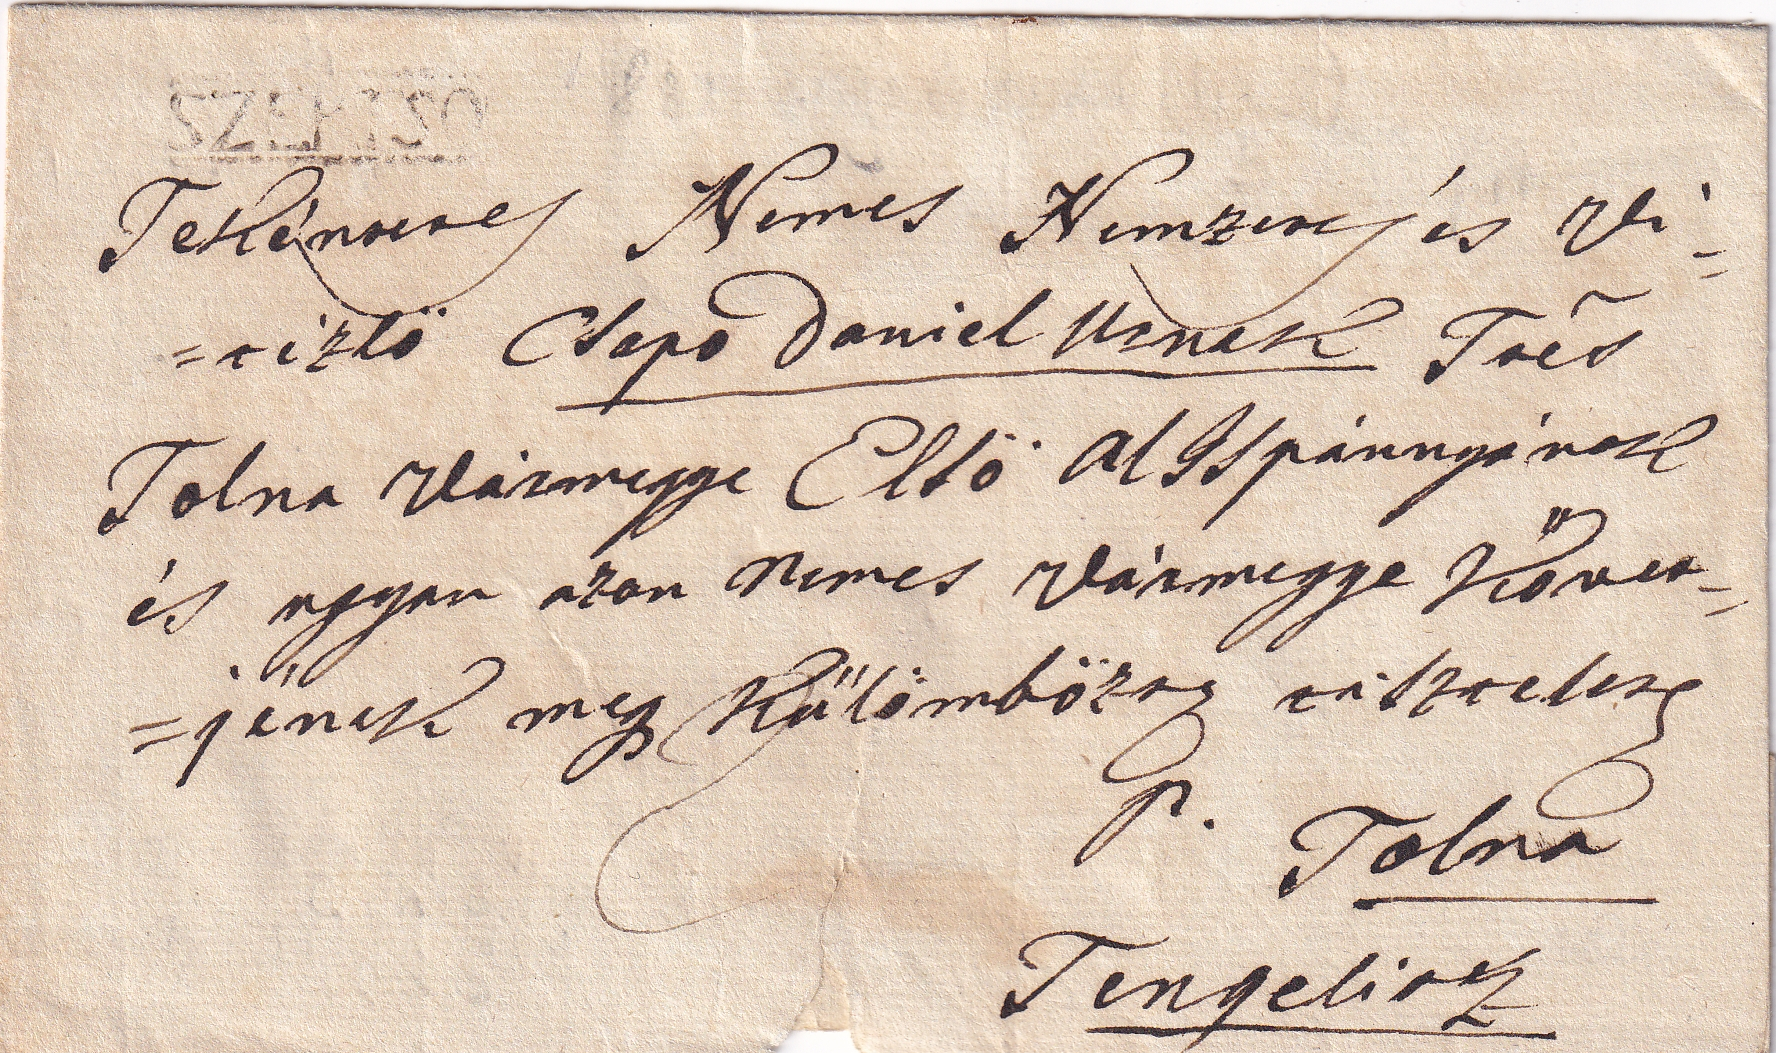 SZEKTSO
Tekéntetes Nemes Nemzetes és Vi=
=tézlö Csapó Daniel Urnak Ttes
Tolna Vármegye Elsö Al Ispánnyának
és ugyan azon Nemes Vármegye Követ=
=jének meg Külömböztetett tisztelettel
p. Tolna
Tengelicz